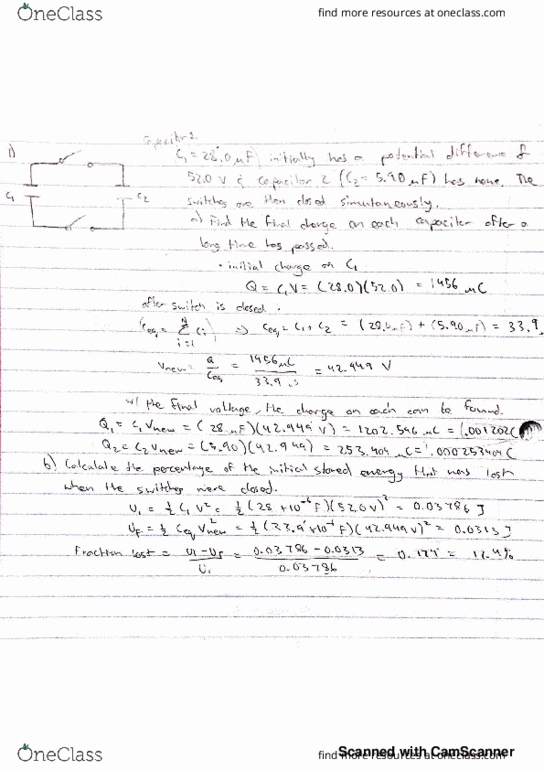 OneClass
find more resources at oneclass.com
Capacitors.
1)
C₁ = 28.0 μF) initially has a potential difference of
52.0 V & capacitor 2 (C₂ = 5.90 μF) has none. The
switches are then closed simultaneously.
C₁
C₂
a) Find the final charge on each capacitor after a
long time has passed.
• initial charge on C₁
Q = C₁V = (28.0)(52.0) = 1456 μC
after switch is closed.
Ceq = Σ Ci i=1 ⇒ Ceq = C₁ + C₂ = (28.0 μF) + (5.90 μF) = 33.9
Vnew = Q/Ceq = 1456 μC/33.9 = 42.949 V
w/ the final voltage, the charge on each can be found.
Q₁ = C₁Vnew = (28 μF)(42.949 V) = 1202.546 μC = (.001202C
Q₂ = C₂Vnew = (5.90)(42.949) = 253.404 μC = .000253404C
b) Calculate the percentage of the initial stored energy that was lost
when the switches were closed.
U₁ = ½ C₁ V² = ½ (28 × 10⁻⁶ F)(52.0 V)² = 0.03786 J
UF = ½ Ceq V²new = ½ (33.9 × 10⁻⁶ F)(42.949 V)² = 0.0313 J
Fraction lost = U₁ − UF/U₁ = 0.03786 − 0.0313/0.03786 =
OneClass
find more resources at oneclass.com
Scanned with CamScanner